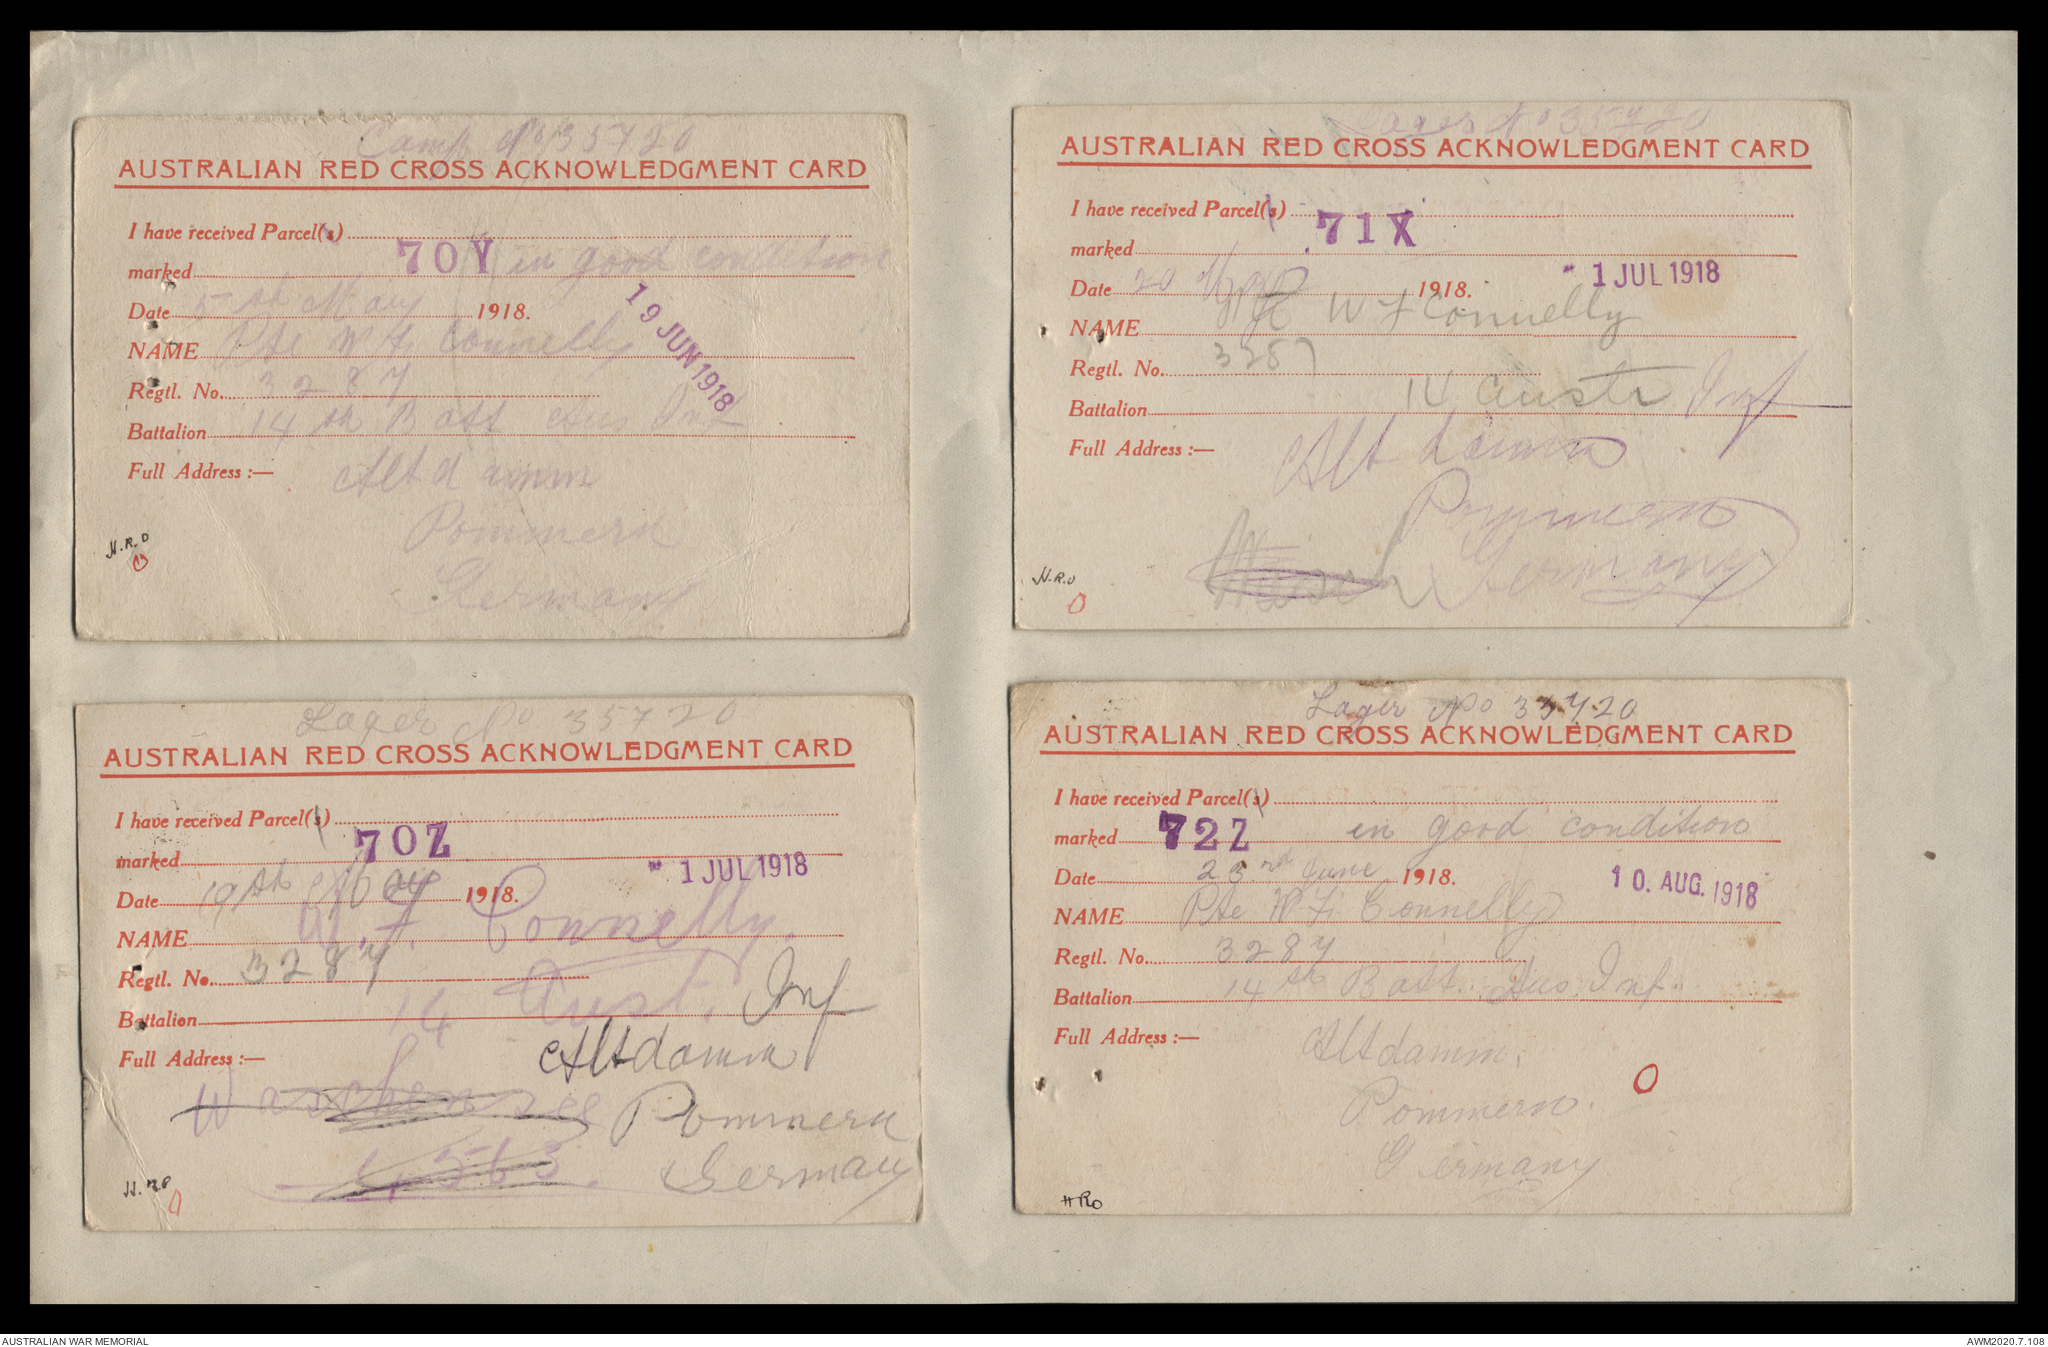 Camp No 35720
AUSTRALIAN RED CROSS ACKNOWLEDGMENT CARD
I have received Parcel(s)
marked 70Y in good condition
Date 5th May 1918.
19 JUN 1918
NAME Pte W. F. Connelly
Regtl. No. 3287
Battalion 14th Batt Aus Inf
Full Address :— Altdamm
Pommern
Germany
H.R.O
Lager No 35720
AUSTRALIAN RED CROSS ACKNOWLEDGMENT CARD
I have received Parcel(s)
marked 71X
Date 20 May 1918.
1 JUL 1918
NAME Pte W F Connelly
Regtl. No. 3287
Battalion 14 Austr Inf
Full Address :— Altdamm
Pommern
Germany
H.R.O
Lager No 35720
AUSTRALIAN RED CROSS ACKNOWLEDGMENT CARD
I have received Parcel(s)
marked 70Z
1 JUL 1918
Date 19th May 1918.
NAME W. F. Connelly.
Regtl. No. 3287
Battalion 14 Aust. Inf
Full Address :— Altdamm
Pommern
Germany
Lager No 35720
AUSTRALIAN RED CROSS ACKNOWLEDGMENT CARD
I have received Parcel(s)
marked 72Z in good condition
Date 23rd June 1918.
10. AUG. 1918
NAME Pte W. F. Connelly
Regtl. No. 3287
Battalion 14th Batt. Aus. Inf.
Full Address :— Altdamm.
Pommern.
Germany
HRO
AUSTRALIAN WAR MEMORIAL
AWM2020.7.108